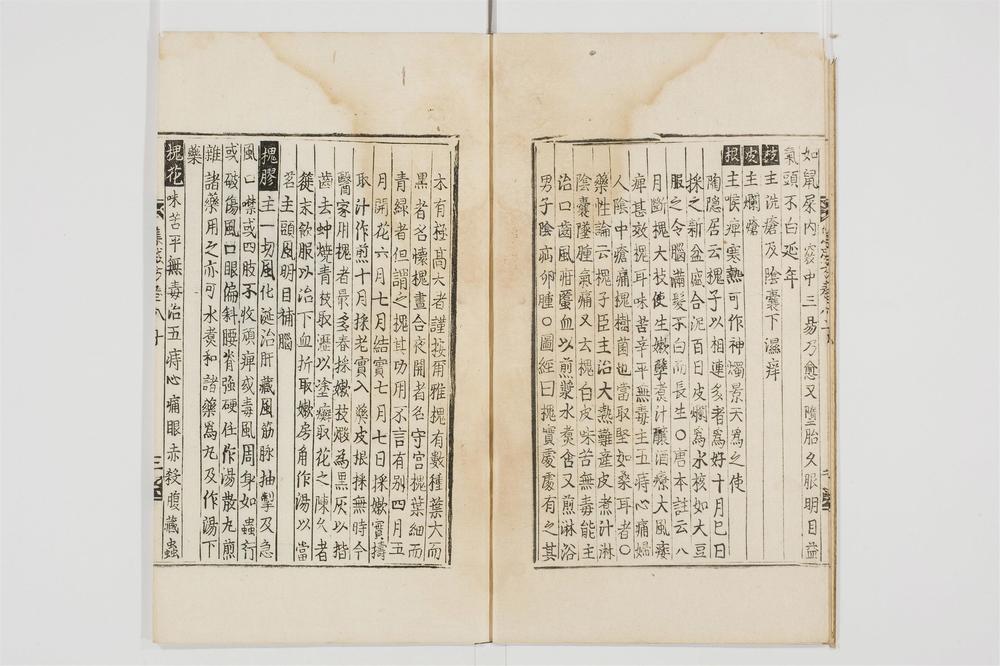 如鼠屎內竅中三易乃愈又墮胎久服明目益
氣頭不白延年
枝主洗瘡及陰囊下濕痒
皮主爛瘡
根主喉痺寒熱可作神燭景天爲之使
陶隱居云槐子以相連多者爲好十月巳日
採之新盆盛合泥百日皮爛爲水核如大豆
服之令腦滿髮不白而長生○唐本註云八
月斷槐大枝使生嫩蘗煮汁釀酒療大風痿
痺甚效槐耳味苦辛平無毒主五痔心痛婦
人陰中瘡痛槐樹菌也當取堅如桑耳者○
藥性論云槐子臣主治大熱難産皮煮汁淋
陰囊墜腫氣痛又云槐白皮味苦無毒能主
治口齒風疳䘌血以煎漿水煮含又煎淋浴
男子陰疝卵腫○圖經曰槐實處處有之其
木有極高大者謹按爾雅槐有數種葉大而
黑者名櫰槐晝合夜開者名守宮槐葉細而
青綠者但謂之槐其功用不言有別四月五
月開花六月七月結實七月七日採嫩實擣
取汁作煎十月採老實入藥皮根採無時今
醫家用槐者最多春採嫩枝煆為黑灰以揩
齒去蚛燒青枝取瀝以塗癬取花之陳久者
篵末飮服以治下血折取嫩房角作湯以當
茗主頭風明目補腦
槐膠主一切風化涎治肝藏風筋脉抽掣及急
風口噤或四肢不收頑痺或毒風周身如蟲行
或破傷風口眼偏斜腰脊強硬任作湯散丸煎
雜諸藥用之亦可水煮和諸藥爲丸及作湯下
藥
槐花味苦平無毒治五痔心痛眼赤殺腹藏蟲